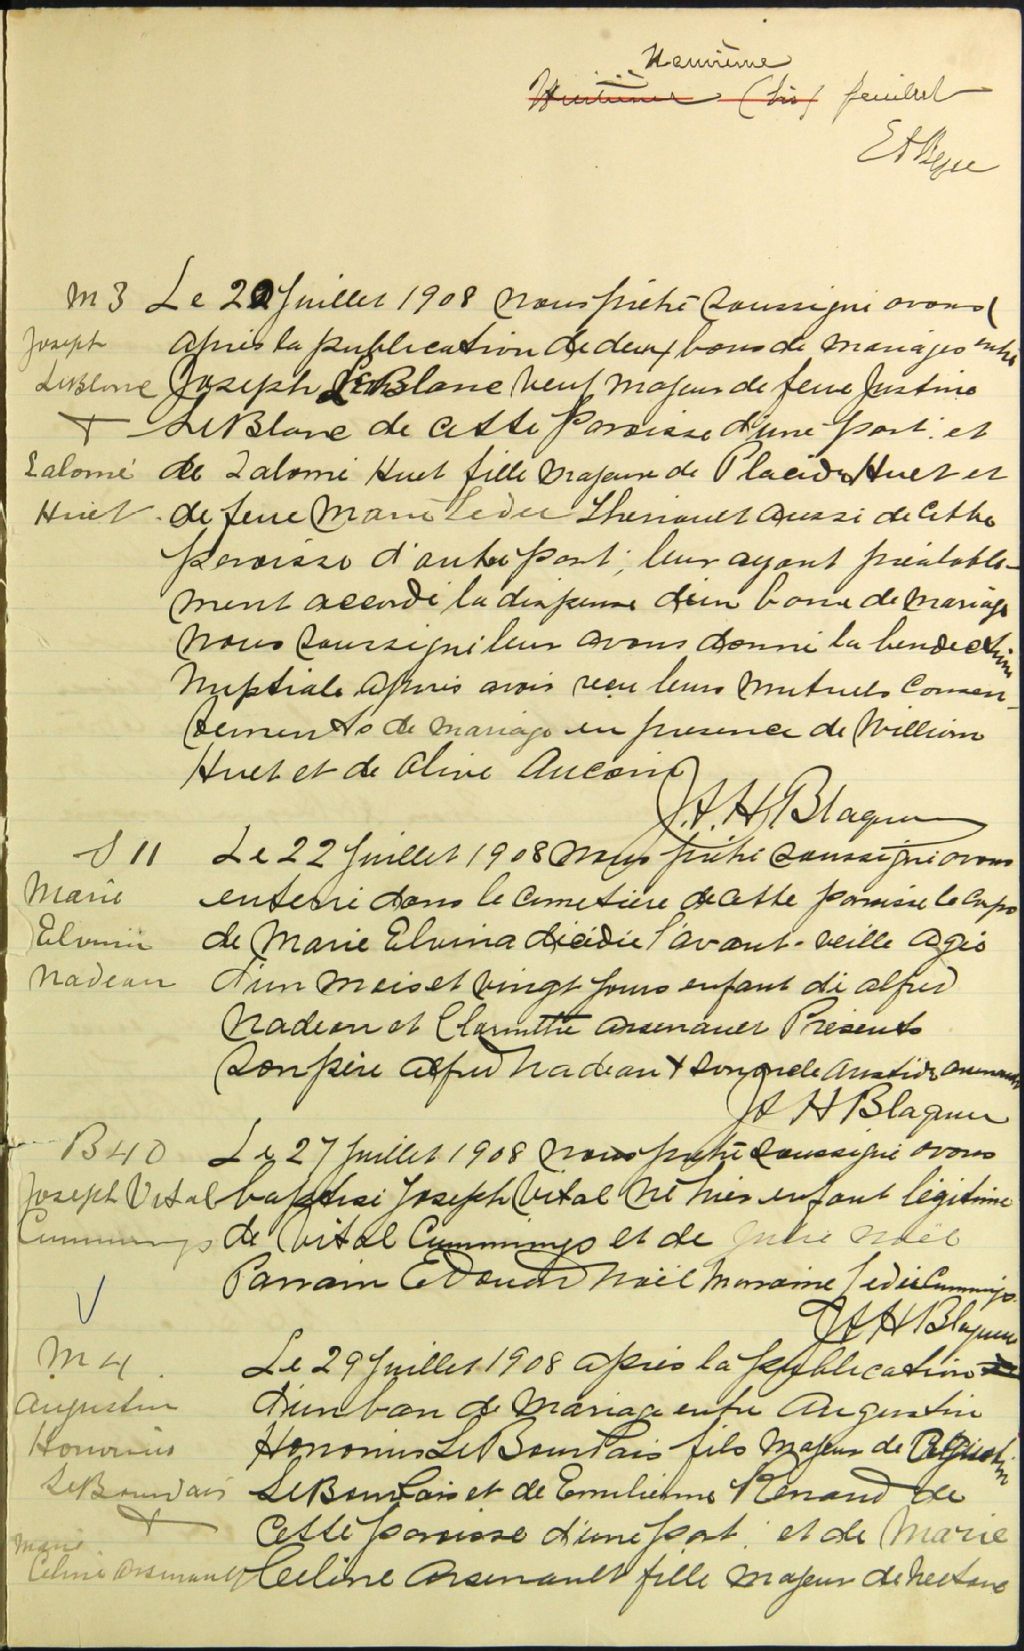 Neuvième
Huitième (bis) feuillet
M 3 Le 20 Juillet 1908 nous prêtre soussigné avons
Joseph après la publication de deux bans de mariages entre
LeBlanc Joseph LeBlanc veuf majeur de feue Justine
+ LeBlanc de cette paroisse d'une part, et
Salomé de Salomé Huet fille majeure de Placide Huet et
Huet de feue Marie Theriault aussi de cette
paroisse d'autre part; leur ayant préalable-
ment accordé la dispense d'un banc de mariage
nous soussigné leur avons donné la bénédiction
nuptiale après avoir reçu leurs mutuels consen-
tements de mariage en présence de William
Huet et de Olive Aucoin
J.A.H. Blaquière
S 11 Le 22 Juillet 1908 nous prêtre soussigné avons
Marie enterré dans le cimetière de cette paroisse le corps
Elvina de Marie Elvina décédée l'avant-veille agée
Nadeau d'un mois et vingt jours enfant de Alfred
Nadeau et Arsenault Présents
son père Alfred Nadeau & son oncle Arsenault
J A H Blaquière
B 40 Le 27 Juillet 1908 nous prêtre soussigné avons
Joseph Vital baptisé Joseph Vital né hier enfant légitime
Cummings de Vital Cummings et de Julie Noël
Parrain Edouard Noël Marraine Cummings.
J A H Blaquière
M 4. Le 29 Juillet 1908 après la publication
Augustin d'un ban de mariage entre Augustin
Honorius Honorius LeBourdais fils majeur de Augustin
LeBourdais LeBourdais et de Emilienne Renaud de
+ cette paroisse d'une part, et de Marie
Marie
Celine Arsenault Celine Arsenault fille majeur de Nectaire